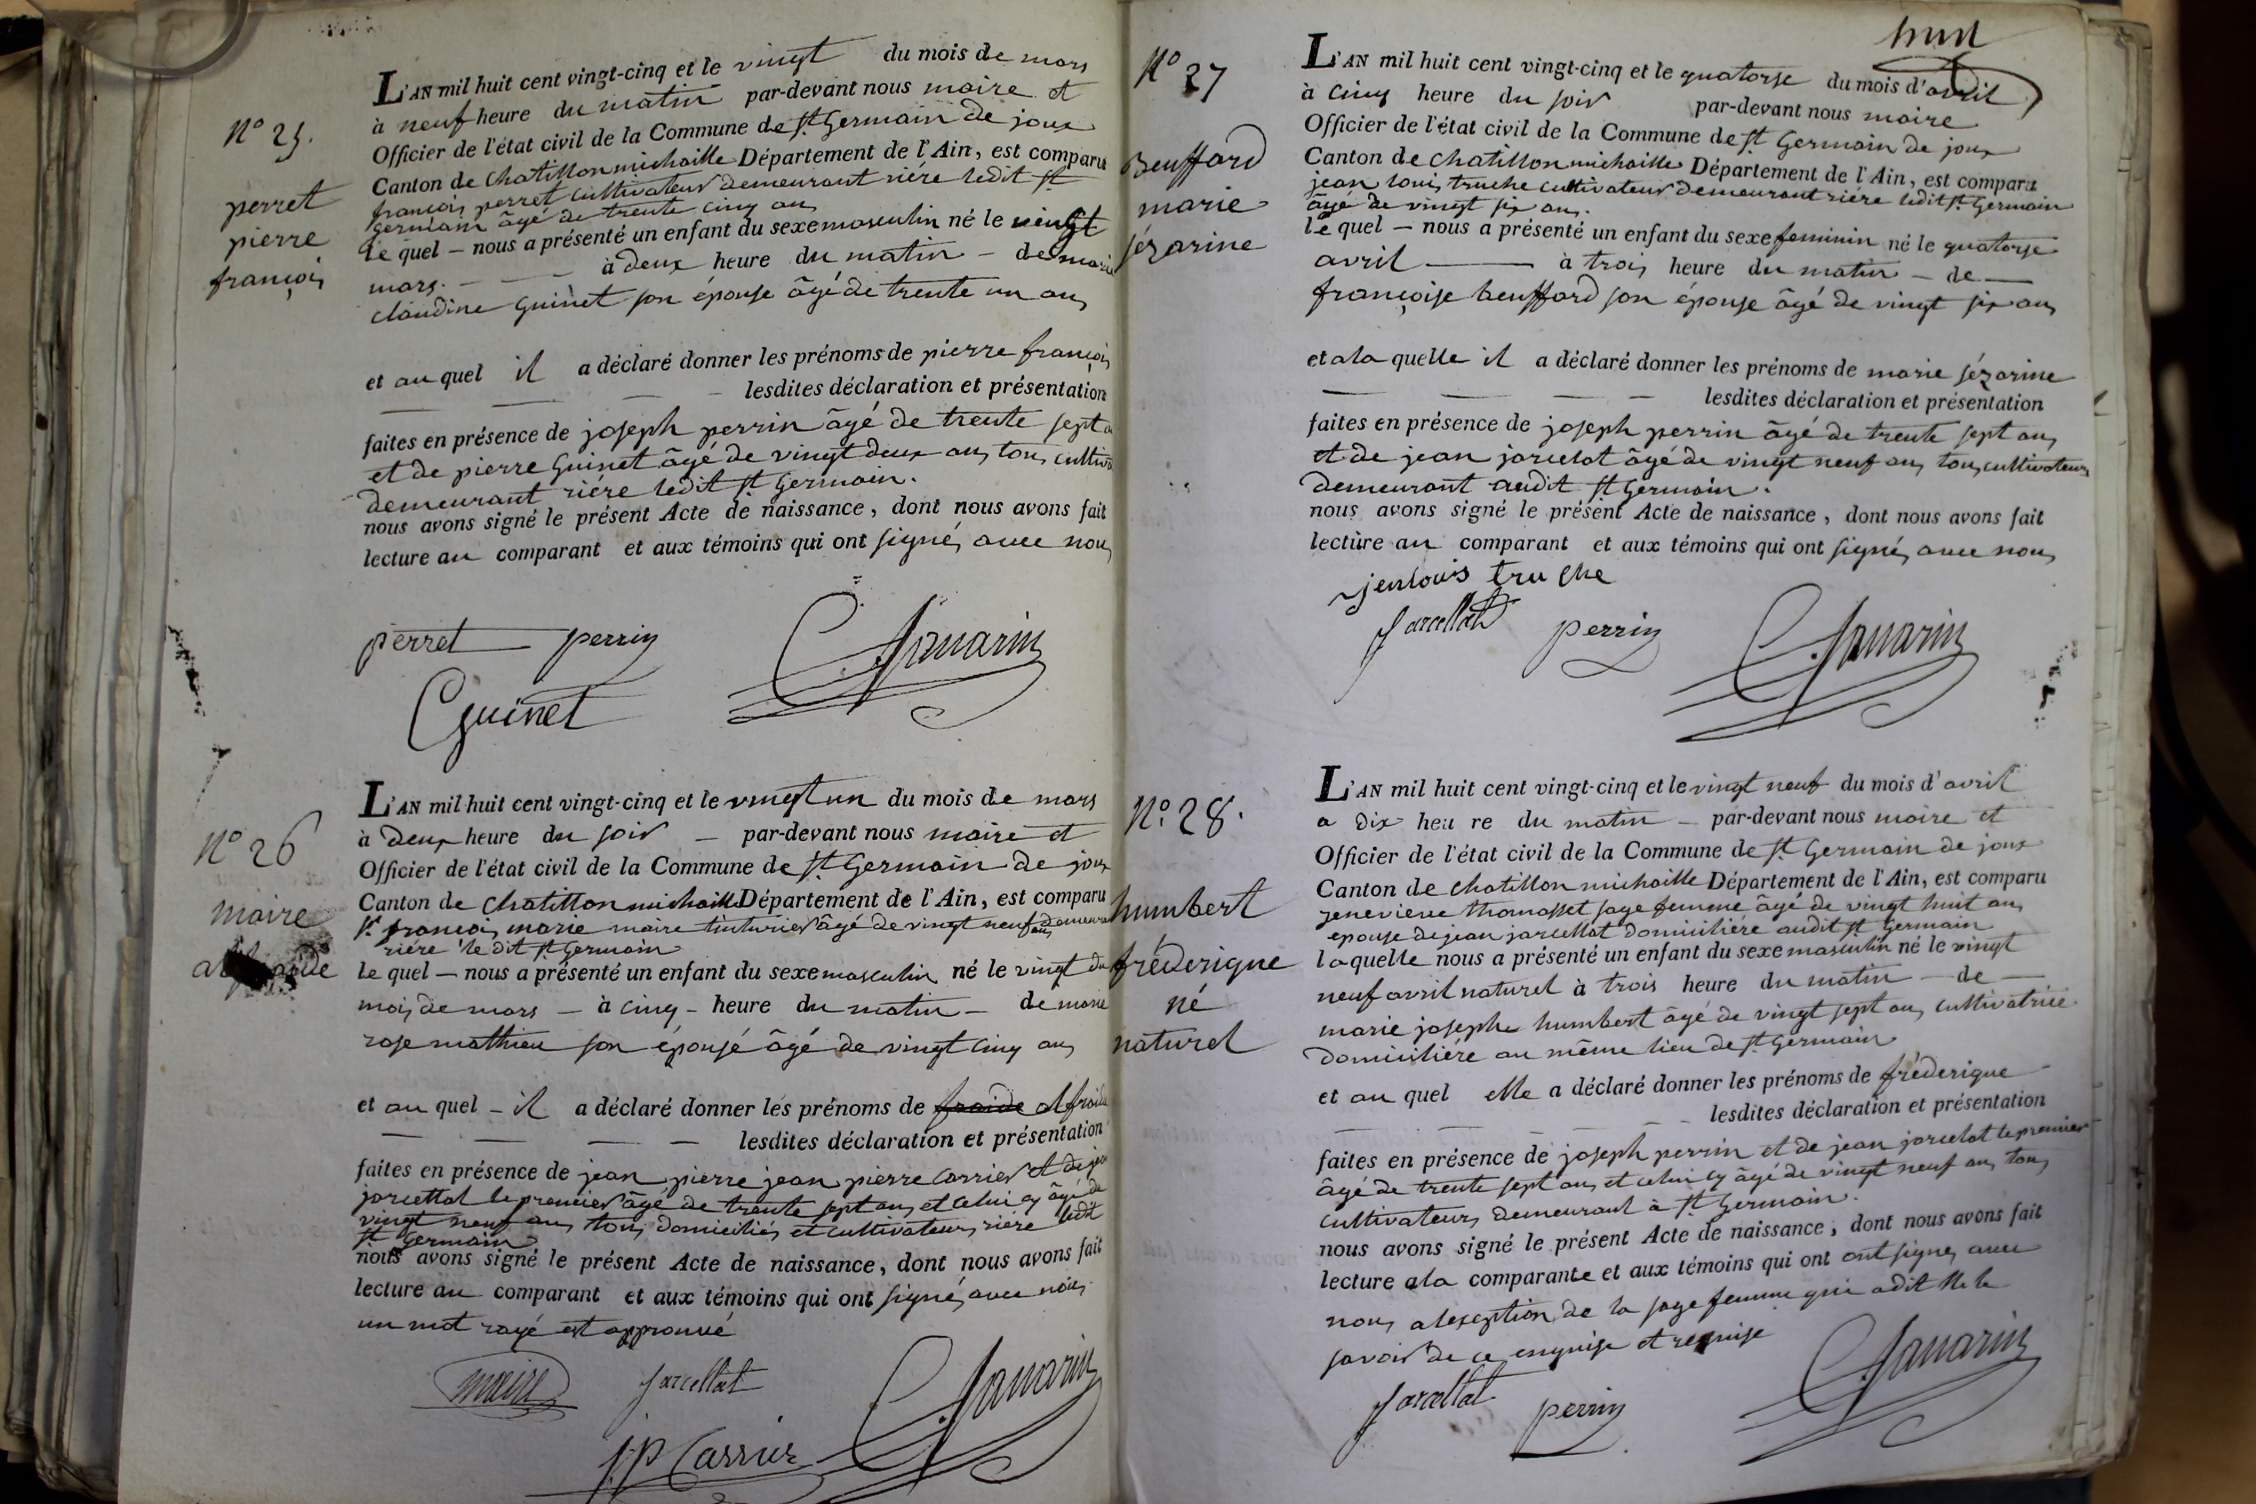 N° 25.
perret
pierre
françois
L'AN mil huit cent vingt-cinq et le vingt du mois de mars
à neuf heure du matin par-devant nous maire et
Officier de l'état civil de la Commune de St Germain de joux
Canton de Chatillon michaille Département de l'Ain, est comparu
françois perret cultivateur demeurant riére ledit St
Germain âgé de trente cinq ans
le quel — nous a présenté un enfant du sexe masculin né le vingt
mars. — à deux heure du matin — de marie
claudine Guinet son épouse âgé de trente un ans
et au quel il a déclaré donner les prénoms de pierre françois
lesdites déclaration et présentation
faites en présence de joseph perrin âgé de trente sept
et de pierre Guinet âgé de vingt deux ans tous cultiv
demeurant riére ledit St Germain.
nous avons signé le présent Acte de naissance, dont nous avons fait
lecture au comparant et aux témoins qui ont signés avec nous
perret perrin
Guinet
N° 26
maire
L'AN mil huit cent vingt-cinq et le vingt un du mois de mars
à deux heure du soir — par-devant nous maire et
Officier de l'état civil de la Commune de St Germain de joux
Canton de Chatillon michaille Département de l'Ain, est comparu
sr françois marie maire tinturier âgé de vingt neuf ans demeura
riére le dit St Germain
le quel — nous a présenté un enfant du sexe masculin né le vingt du
mois de mars — à cinq — heure du matin — de marie
rose mathieu son épousé âgé de vingt cinq ans
et au quel — il a déclaré donner les prénoms de fraide alfraide
lesdites déclaration et présentation
faites en présence de jean pierre jean pierre Carrier et de jean
jarcellat le premier âgé de trente sept ans et celui cy âgé de
vingt neuf ans tous domiciliés et cultivateurs riére ledit
St Germain
nous avons signé le présent Acte de naissance, dont nous avons fait
lecture au comparant et aux témoins qui ont signés avec nous
un mot rayé est approuvé
maire jarcellat
j.p Carrier
N° 27
Beufford
marie
jézarine
L'AN mil huit cent vingt-cinq et le quatorse du mois d'avril
à cinq heure du soir par-devant nous maire
Officier de l'état civil de la Commune de St Germain de joux
Canton de Chatillon michaille Département de l'Ain, est comparu
jean louis truche cultivateur demeurant riére ledit St Germain
âgé de vingt six ans.
le quel — nous a présenté un enfant du sexe feminin né le quatorse
avril — à trois heure du matin — de —
françoise beufford son épouse âgé de vingt six ans
et a la quelle il a déclaré donner les prénoms de marie jézarine
lesdites déclaration et présentation
faites en présence de joseph perrin âgé de trente sept ans
et de jean jarcelot âgé de vingt neuf ans tous cultivateurs
demeurant audit St Germain.
nous avons signé le présent Acte de naissance, dont nous avons fait
lecture au comparant et aux témoins qui ont signés avec nous
jenlouis truche
jarcellat perrin
N° 28.
humbert
fréderique
né
naturel
L'AN mil huit cent vingt-cinq et le vingt neuf du mois d'avril
a dix heure du matin — par-devant nous maire et
Officier de l'état civil de la Commune de St Germain de joux
Canton de Chatillon michaille Département de l'Ain, est comparu
genevieve thomasset sage femme âgé de vingt huit ans
epouse de jean jarcellat domiciliére audit St Germain
laquelle nous a présenté un enfant du sexe masculin né le vingt
neuf avril naturel à trois heure du matin — de —
marie josephe humbert âgé de vingt sept ans cultivatrice
domiciliére au même lieu de St Germain
et au quel elle a déclaré donner les prénoms de fréderique
lesdites déclaration et présentation
faites en présence de joseph perrin et de jean jarcelot le premier
âgé de trente sept ans et celui cy âgé de vingt neuf ans tous
cultivateurs demeurant à St Germain.
nous avons signé le présent Acte de naissance, dont nous avons fait
lecture ala comparante et aux témoins qui ont ont signes avec
nous alexeption de la sage femme qui adit ne le
savoir de ce enquise et requise
jarcellat perrin